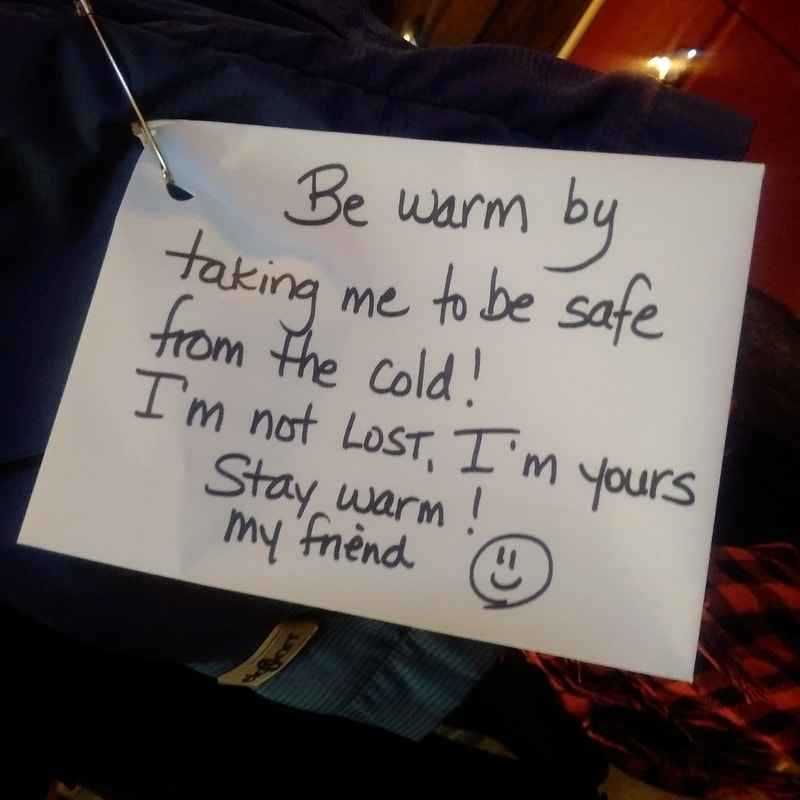 Be warm by
taking me to be safe
from the cold!
I'm not LOST, I'm yours
Stay warm!
my friend